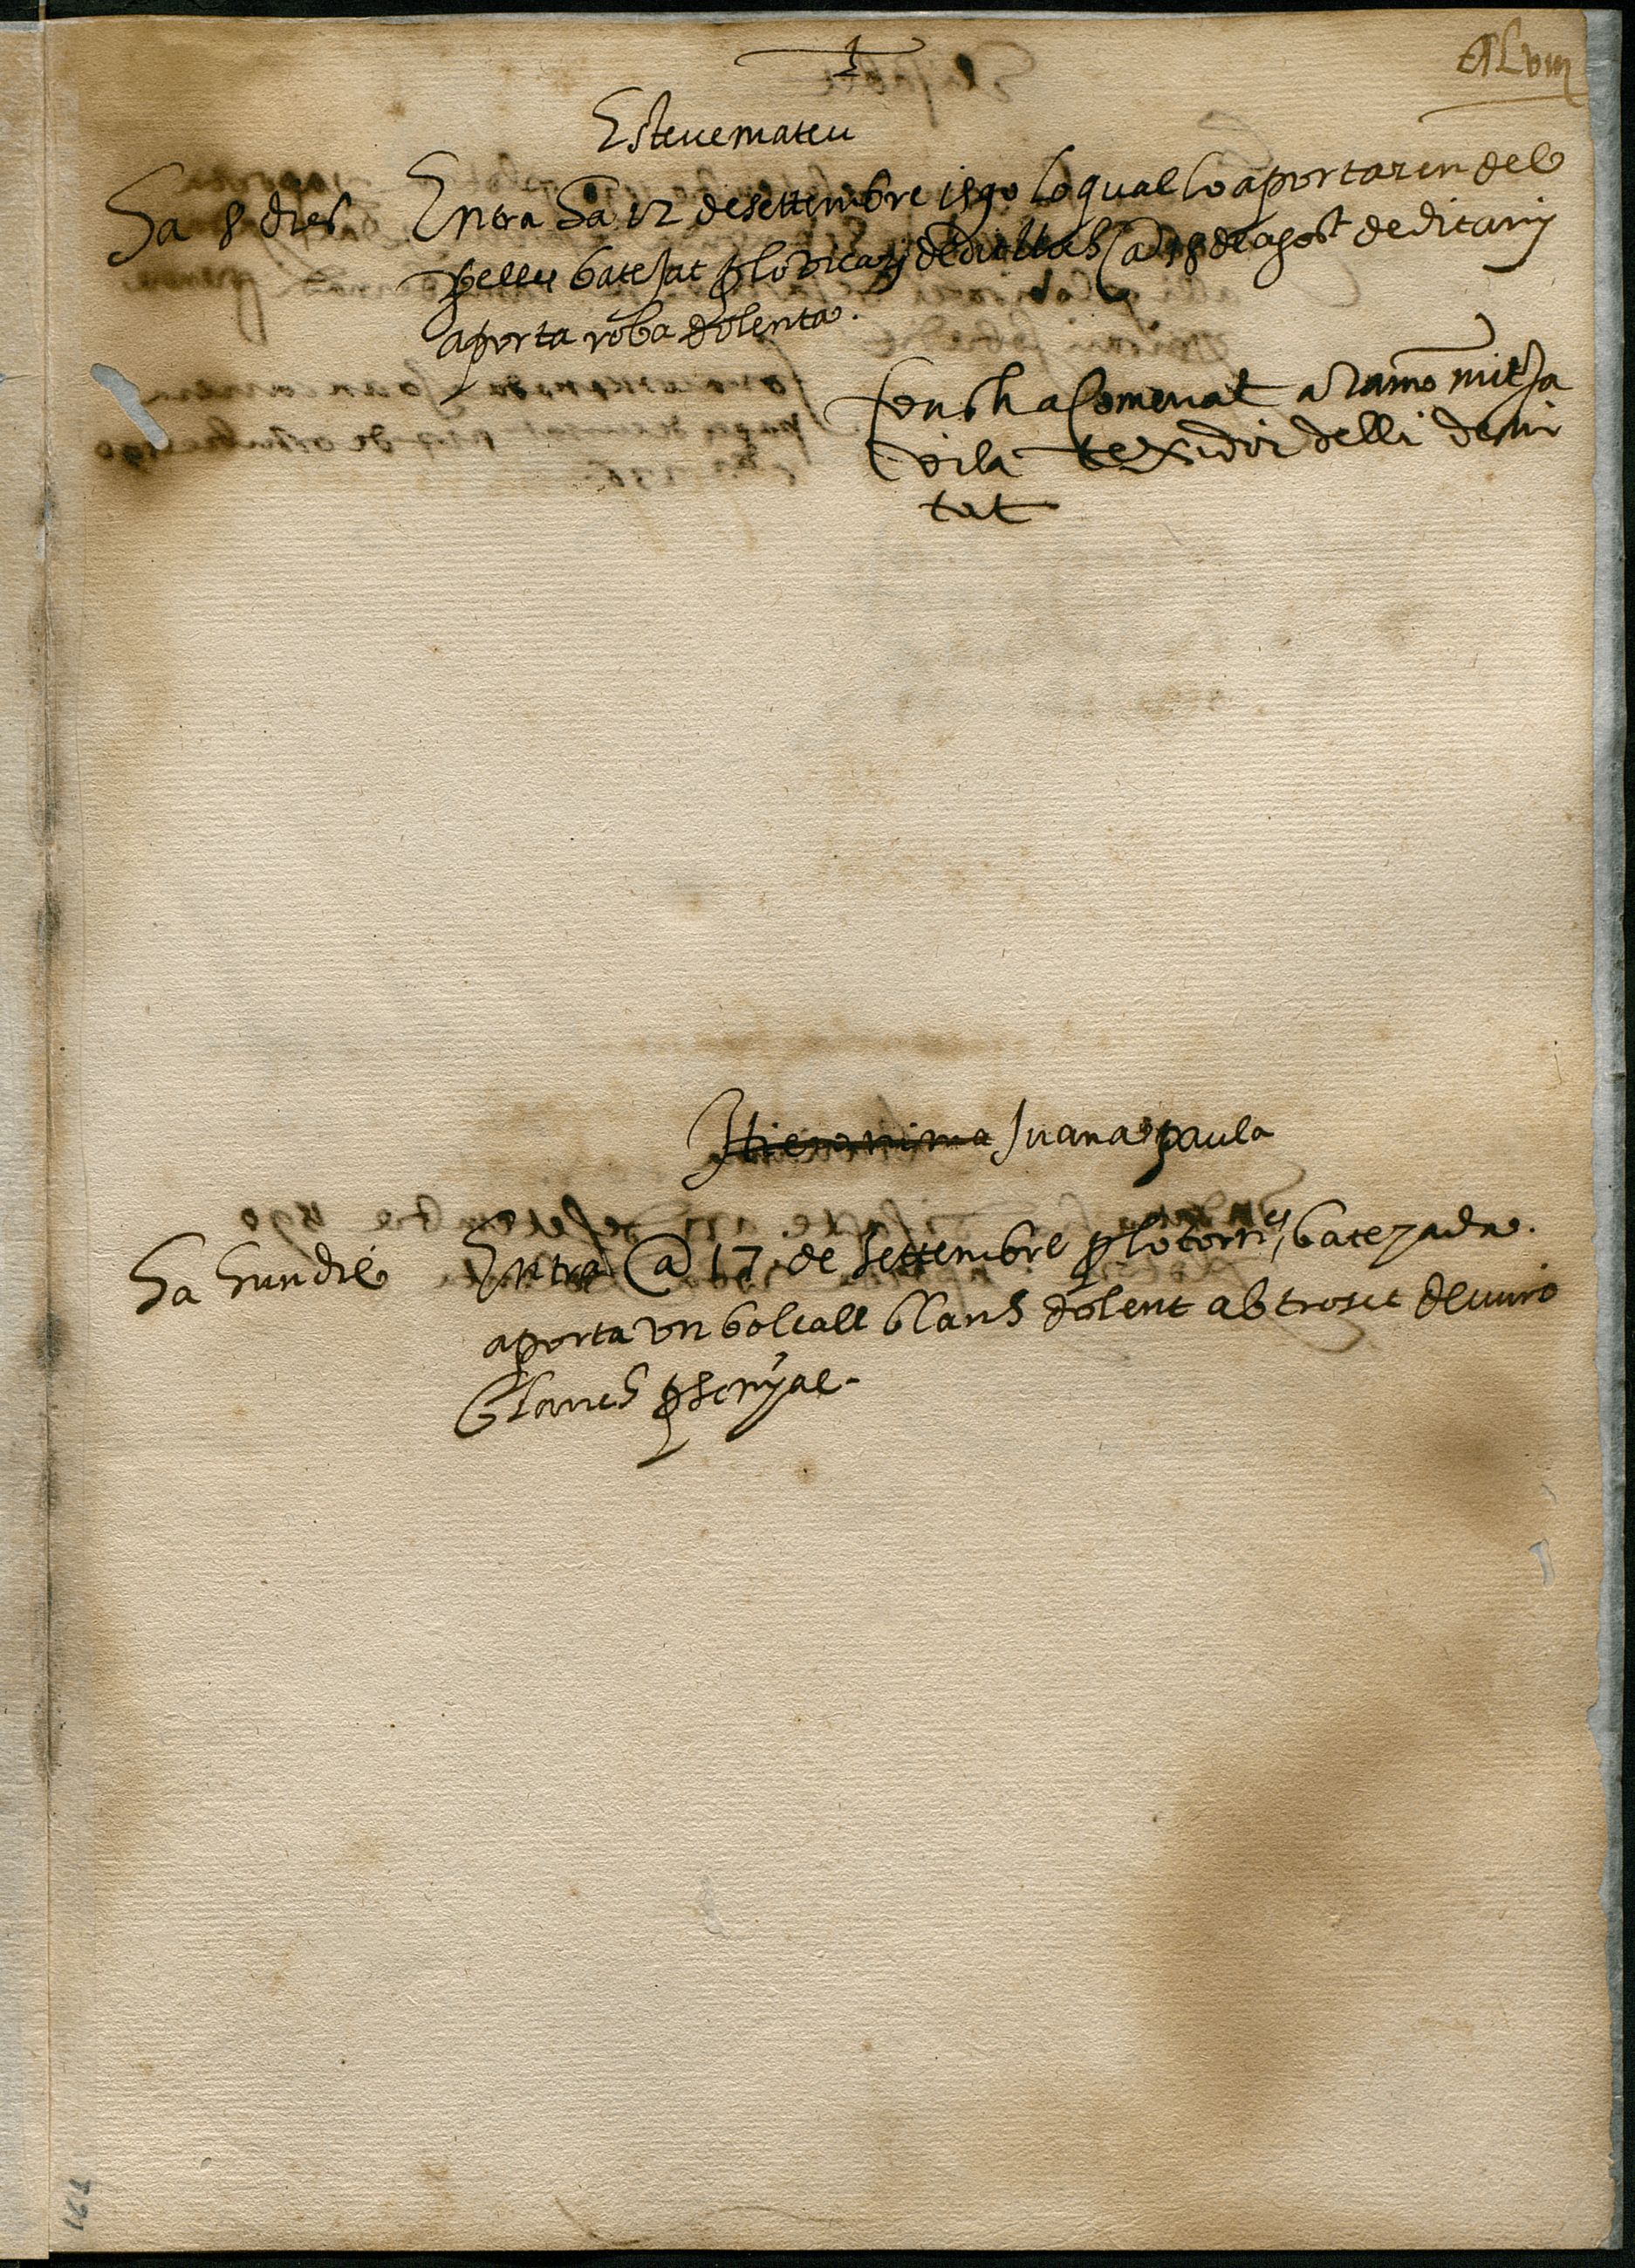 Esteve mateu
ha 8 dies
Entra ha 12 de settembre 1590 lo qual lo aportaren del
batejat p lo vicari de a 18 de agost de dit any
aporta roba dolenta.
fonch acomenat a ramo mitja
vila texidor de lli de mi
tat
Hieronima Juana paula
ha hun die
Entra @ 17 de settembre p lo torn, batezada.
aporta un bolcall blanch dolent ab troset de
blanch p senyal.
162